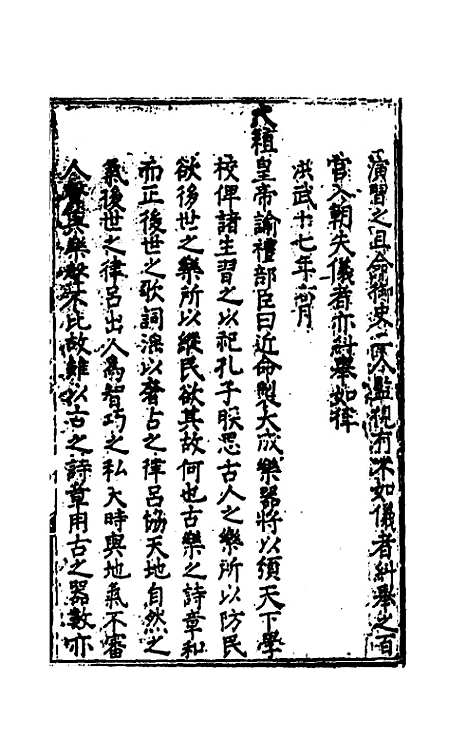 演習之且命御史二人監視有不如儀者糾舉之百
官入朝失儀者亦糾舉如律
洪武十七年六月
太祖皇帝諭禮部臣曰近命製大成樂器將以頒天下學
校俾諸生習之以祀孔子朕思古人之樂所以防民
欲後世之樂所以縱民欲其故何也古樂之詩章和
而正後世之歌詞淫以者古之律呂協天地自然之
氣後世之律呂出人為智巧之私天時與地氣不審
人聲與樂聲不比故雖以古之詩章用古之器數亦